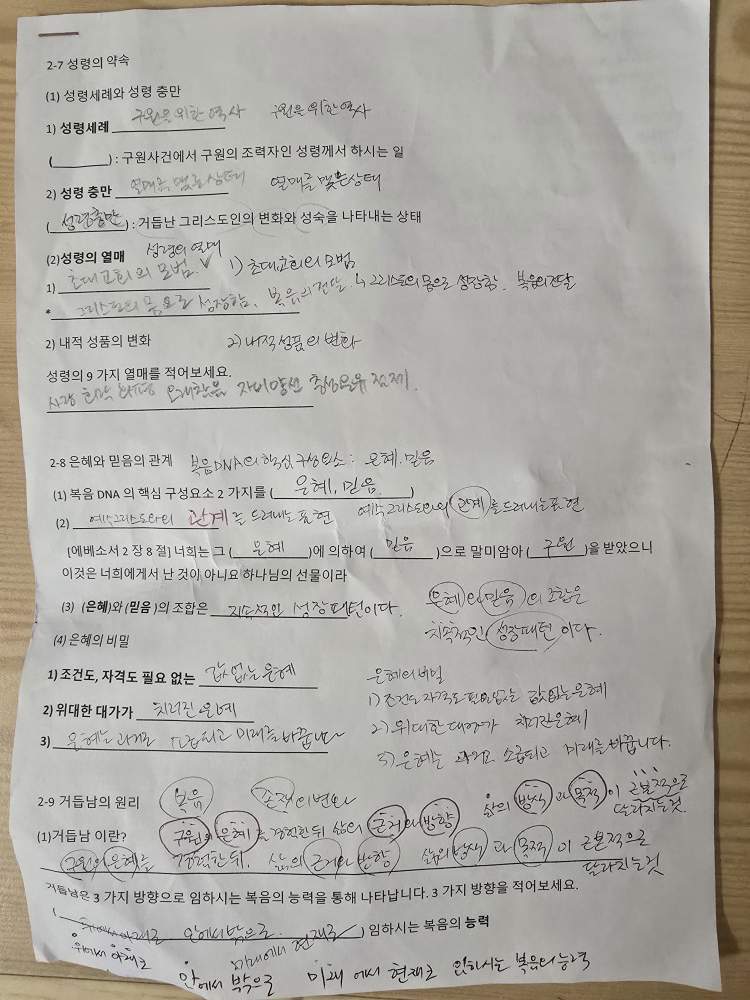 2-7 성령의 약속
(1) 성령세례와 성령 충만
1) 성령세례 구원을 위한 역사 구원을 위한 역사
(        ) : 구원사건에서 구원의 조력자인 성령께서 하시는 일
2) 성령 충만 열매를 맺은 상태 열매를 맺은 상태
( 성령충만 ) : 거듭난 그리스도인의 변화와 성숙을 나타내는 상태
(2)성령의 열매 성령의 열매
1) 초대교회의 모범. 1) 초대교회의 모범
* 그리스도의 몸으로 성장함. 복음의 전달 ↳ 그리스도의 몸으로 성장함. 복음의 전달
2) 내적 성품의 변화 2) 내적 성품의 변화
성령의 9 가지 열매를 적어보세요.
사랑 희락 화평 오래참음 자비 양선 충성 온유 절제.
2-8 은혜와 믿음의 관계 복음DNA의 핵심 구성요소 : 은혜. 믿음
(1) 복음 DNA 의 핵심 구성요소 2 가지를 ( 은혜, 믿음 )
(2) 예수그리스도와의 관계를 드러내는 표현 예수그리스도와의 관계를 드러내는 표현
[에베소서 2 장 8 절] 너희는 그 ( 은혜 )에 의하여 ( 믿음 )으로 말미암아 ( 구원 )을 받았으니
이것은 너희에게서 난 것이 아니요 하나님의 선물이라
(3) (은혜)와 (믿음 )의 조합은 지속적인 성장패턴이다. 은혜와 믿음의 조합은
지속적인 성장패턴이다.
(4) 은혜의 비밀
1) 조건도, 자격도 필요 없는 값없는 은혜 은혜의 비밀
1) 조건도 자격도 필요없는 값없는 은혜
2) 위대한 대가가 치러진 은혜 2) 위대한 대가가 치러진 은혜
3) 은혜는 과거로 소급되고 미래를 바꿉니다 3) 은혜는 과거로 소급되고 미래를 바꿉니다.
2-9 거듭남의 원리 복음 존재의 변화
(1)거듭남 이란? 구원의 은혜를 경험한 뒤 삶의 근거와 방향 삶의 방식과 목적이 근본적으로
달라지는 것.
구원의 은혜를 경험한 뒤. 삶의 근거와 방향 삶의 방식과 목적이 근본적으로
달라지는 것
거듭남은 3 가지 방향으로 임하시는 복음의 능력을 통해 나타납니다. 3 가지 방향을 적어보세요.
( 위에서 아래로 안에서 밖으로. 미래에서 현재로 ) 임하시는 복음의 능력
위에서 아래로 안에서 밖으로 미래에서 현재로 임하시는 복음의 능력